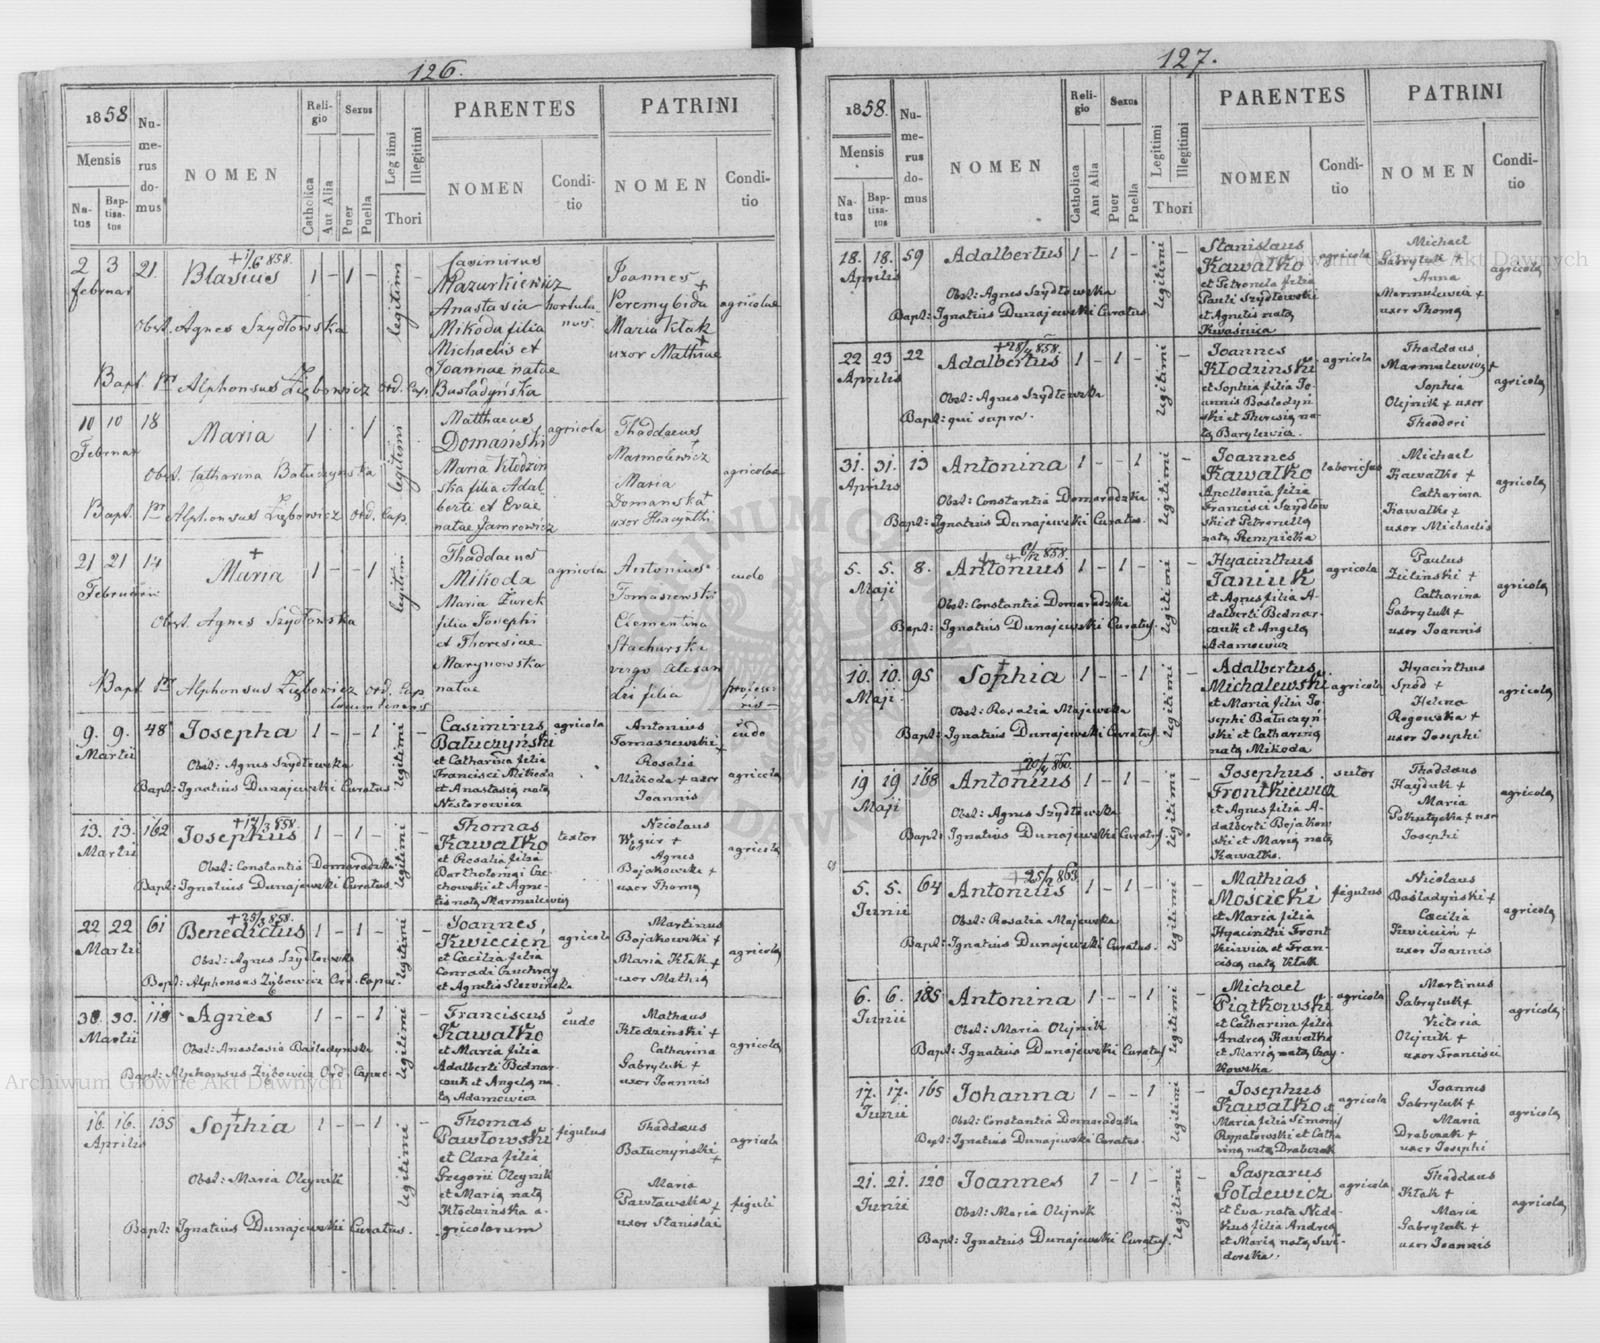 126.
1858
Numerus domus
NOMEN
Religio
Sexus
Legitimi
Illegitimi
PARENTES
PATRINI
Mensis
Natus
Baptisatus
Catholica
Aut Alia
Puer
Puella
Thori
NOMEN
Conditio
NOMEN
Conditio
2 3 21. Blasius 1 - 1 - legitimi -
Februar
Casimirus
Mazurkiewicz
Anastasia
Mikoda filia
Michaelis et
Joannae natae
Joannes +
Maria Kłak
uxor Mathiae
agricolae
Obst. Agnes Szydłowska
Bapt. Pr Alphonsus Ziębowicz Ord. Cap.
10 10 18 Maria 1 1 legitimi
Februar
Matthaeus
Domański
Maria Kłodzin
ska filia Adal
berti et Evae
natae Jamrowicz
agricola
Thaddaeus
Marmolewicz
Maria
Domanska +
uxor Hiacynthi
agricolae
Obst. Catharina Batuczynska
Bapt. Pr Alphonsus Ziębowicz Ord. Cap.
21 21 14 Maria + 1 - - 1 legitimi
Thaddaeus
Mikoda
Maria Żurek
filia Josephi
et Theresiae
Marynowska
natae
agricola
Antonius
Tomaszewski
Clementina
Stachurska
virgo Alexan
dri filia
cudo
Obst. Agnes Szydłowska
Bapt. Pr Alphonsus Ziębowicz Ord. Cap.
9. 9. 48 Josepha 1 - - 1 legitimi -
Martii
Casimirus
Batuczyński
et Catharina filia
Francisci Mikoda
et Anastasia nata
Nestorowicz
agricola
Antonius
Tomaszewski +
Rosalia
Mikoda + uxor
Joannis
cudo
agricola
Obst: Agnes Szydłowska
Bapt: Ignatius Dunajewski Curatus.
13. 13. 162 +17/3 858. Josephus 1 - 1 - legitimi -
Martii
Thomas
Kawałko
et Rosalia filia
Bartholomei
et Agne-
tis nata Marmulewicz
textor
Nicolaus
Agnes
Bojakowski +
uxor Thoma
agricola
Obst: Constantia Domaradzka
Bapt: Ignatius Dunajewski Curatus.
22 22 61 +25/3 858. Benedictus 1 - 1 - legitimi -
Martii
Joannes
Kwiecien
et Cacilia filia
agricola
Martinus
Bojakowski +
Maria Kłak +
uxor Mathia
agricola
Obst: Agnes Szydłowska
Bapt: Alphonsus Ziębowicz Ord. Capuc.
30. 30. 118 Agnes 1 - - 1 legitimi -
Martii
Franciscus
Kawałko
et Maria filia
Adalberti Bednar-
czuk et Angela na-
ta Adamowicz
cudo
Mathaus
Kłodzinski +
Catharina
Gabryluk +
uxor Joannis
agricola
Obst: Anastasia Basladynska
Bapt: Alphonsus Ziębowicz Ord. Capuc.
16. 16. 135 Sophia + 1 - - 1 legitimi -
Aprilis
Thomas
Pawłowski
et Clara filia
Gregorii Oleynik
et Maria nata
Kłodzinska a-
gricolarum
figulus
Thaddaus
Batuczyński +
Maria
Pawławska +
uxor Stanislai
agricola
figuli
Obst: Maria Oleynik
Bapt: Ignatius Dunajewski Curatus.
127.
1858.
Numerus domus
NOMEN
Religio
Sexus
Legitimi
Illegitimi
PARENTES
PATRINI
Mensis
Natus
Baptisatus
Catholica
Aut Alia
Puer
Puella
Thori
NOMEN
Conditio
NOMEN
Conditio
18. 18. 59 Adalbertus 1 - 1 - legitimi -
Aprilis
Stanislaus
Kawałko
et Petronela filia
Pauli Szydłowski
et Agnetis nata
Kwaśnica
agricola
Michael
Gabryluk +
Anna
Marmulewicz +
uxor Thoma
agricola
Obst: Agnes Szydłowska
Bapt: Ignatius Dunajewski Curatus.
22 23 22 +28/4 858. Adalbertus 1 - 1 - legitimi -
Aprilis
Joannes
Kłodzinski
et Sophia filia Jo-
annis Basladyń
ski et Theresia na-
ta Barylewicz.
agricola
Thaddaus
Marmulewicz +
Sophia
Olejnik + uxor
Theodori
agricola
Obst: Agnes Szydłowska
Bapt: qui supra.
31. 31. 13 Antonina 1 - - 1 legitimi -
Aprilis
Joannes
Kawałko
Apollonia filia
Francisci Szydłow
ski et Petronella
nata Rempicka
Michael
Kawałko +
Catharina
Kawałko +
uxor Michaelis
agricola
Obst: Constantia Domaradzka
Bapt: Ignatius Dunajewski Curatus.
5. 5. 8. Antonius 1 - 1 - legitimi -
Maji
Hyacinthus
Janiuk
et Agnes filia A-
dalberti Bednar-
czuk et Angela
Adamowicz
agricola
Paulus
Zielinski +
Catharina
Gabryluk +
uxor Joannis
agricola
Obst: Constantia Domaradzka
Bapt: Ignatius Dunajewski Curatus.
10. 10. 95 Sophia + 1 - - 1 legitimi -
Maji
Adalbertus
Michalewski
et Maria filia Jo-
sephi Batuczyń
ski et Catharina
nata Mikoda
agricola
Hyacinthus
Spod +
Helena
Rogowska +
uxor Josephi
agricola
Obst: Rosalia Majewska
Bapt: Ignatius Dunajewski Curatus.
19 19 168 Antonius 1 - 1 - legitimi -
Maji
Josephus
Frontkiewicz
et Agnes filia A-
dalberti Bojakow
ski et Maria nata
Kawałko.
sutor
Thaddaus
Hayduk +
Maria
Josephi
agricola
Obst: Agnes Szydłowska
Bapt: Ignatius Dunajewski Curatus.
5. 5. 64 +25/7 863 Antonius 1 - 1 - legitimi -
Junii
Mathias
Mościcki
et Maria filia
Hyacinthi Front
kiewicz et Fran-
cisca nata Kłak
figulus
Nicolaus
Basladyński +
Cacilia
Kwiecień +
uxor Joannis
agricola
Obst: Rosalia Majewska
Bapt: Ignatius Dunajewski Curatus.
6. 6. 185 Antonina 1 - - 1 legitimi -
Junii
Michael
Piątkowski
et Catharina filia
Andrea Kawałko
et Maria nata Czay-
kowska
agricola
Martinus
Gabryluk +
Victoria
Olejnik +
uxor Francisci
agricola
Obst: Maria Olejnik
Bapt: Ignatius Dunajewski Curatus.
17. 17. 165 Johanna 1 - - 1 legitimi -
Junii
Josephus
Kawałko et
Maria filia Simonis
et Catha
rina nata Drabczak
agricola
Joannes
Gabryluk +
Maria
Drabczak +
uxor Josephi
agricola
Obst: Constantia Domaradzka
Bapt: Ignatius Dunajewski Curatus.
21. 21. 120 Joannes 1 - 1 - legitimi -
Junii
Gasparus
Gołdewicz
et Eva nata Niedo-
kus filia Andrea
et Maria nata Swi-
derska.
agricola
Thaddaus
Kłak +
Maria
Gabryluk +
uxor Joannis
agricola
Obst: Maria Olejnik
Bapt: Ignatius Dunajewski Curatus.
Archiwum Główne Akt Dawnych
Archiwum Główne Akt Dawnych